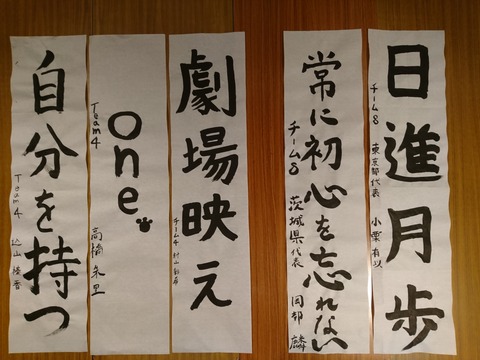 日進月歩
チーム8 東京都代表 小栗有以
常に初心を忘れない
チーム8 茨城県代表 岡部 麟
劇場映え
チーム4 村山彩希
one
Team4 高橋朱里
自分を持つ
Team4 込山榛香